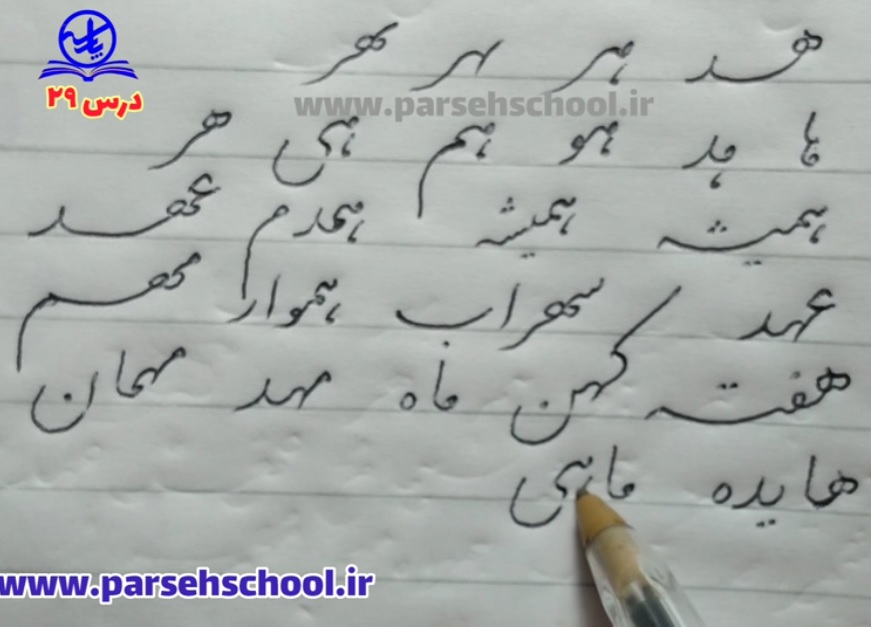 درس ۲۹
هد هر هر هر
www.parsehschool.ir
ها هد هو هم هی هر
همیشه همیشه همدم عهد
عهد سهراب هموار مهم
هفته کهن ماه مهد مهمان
هایده ماهی
www.parsehschool.ir